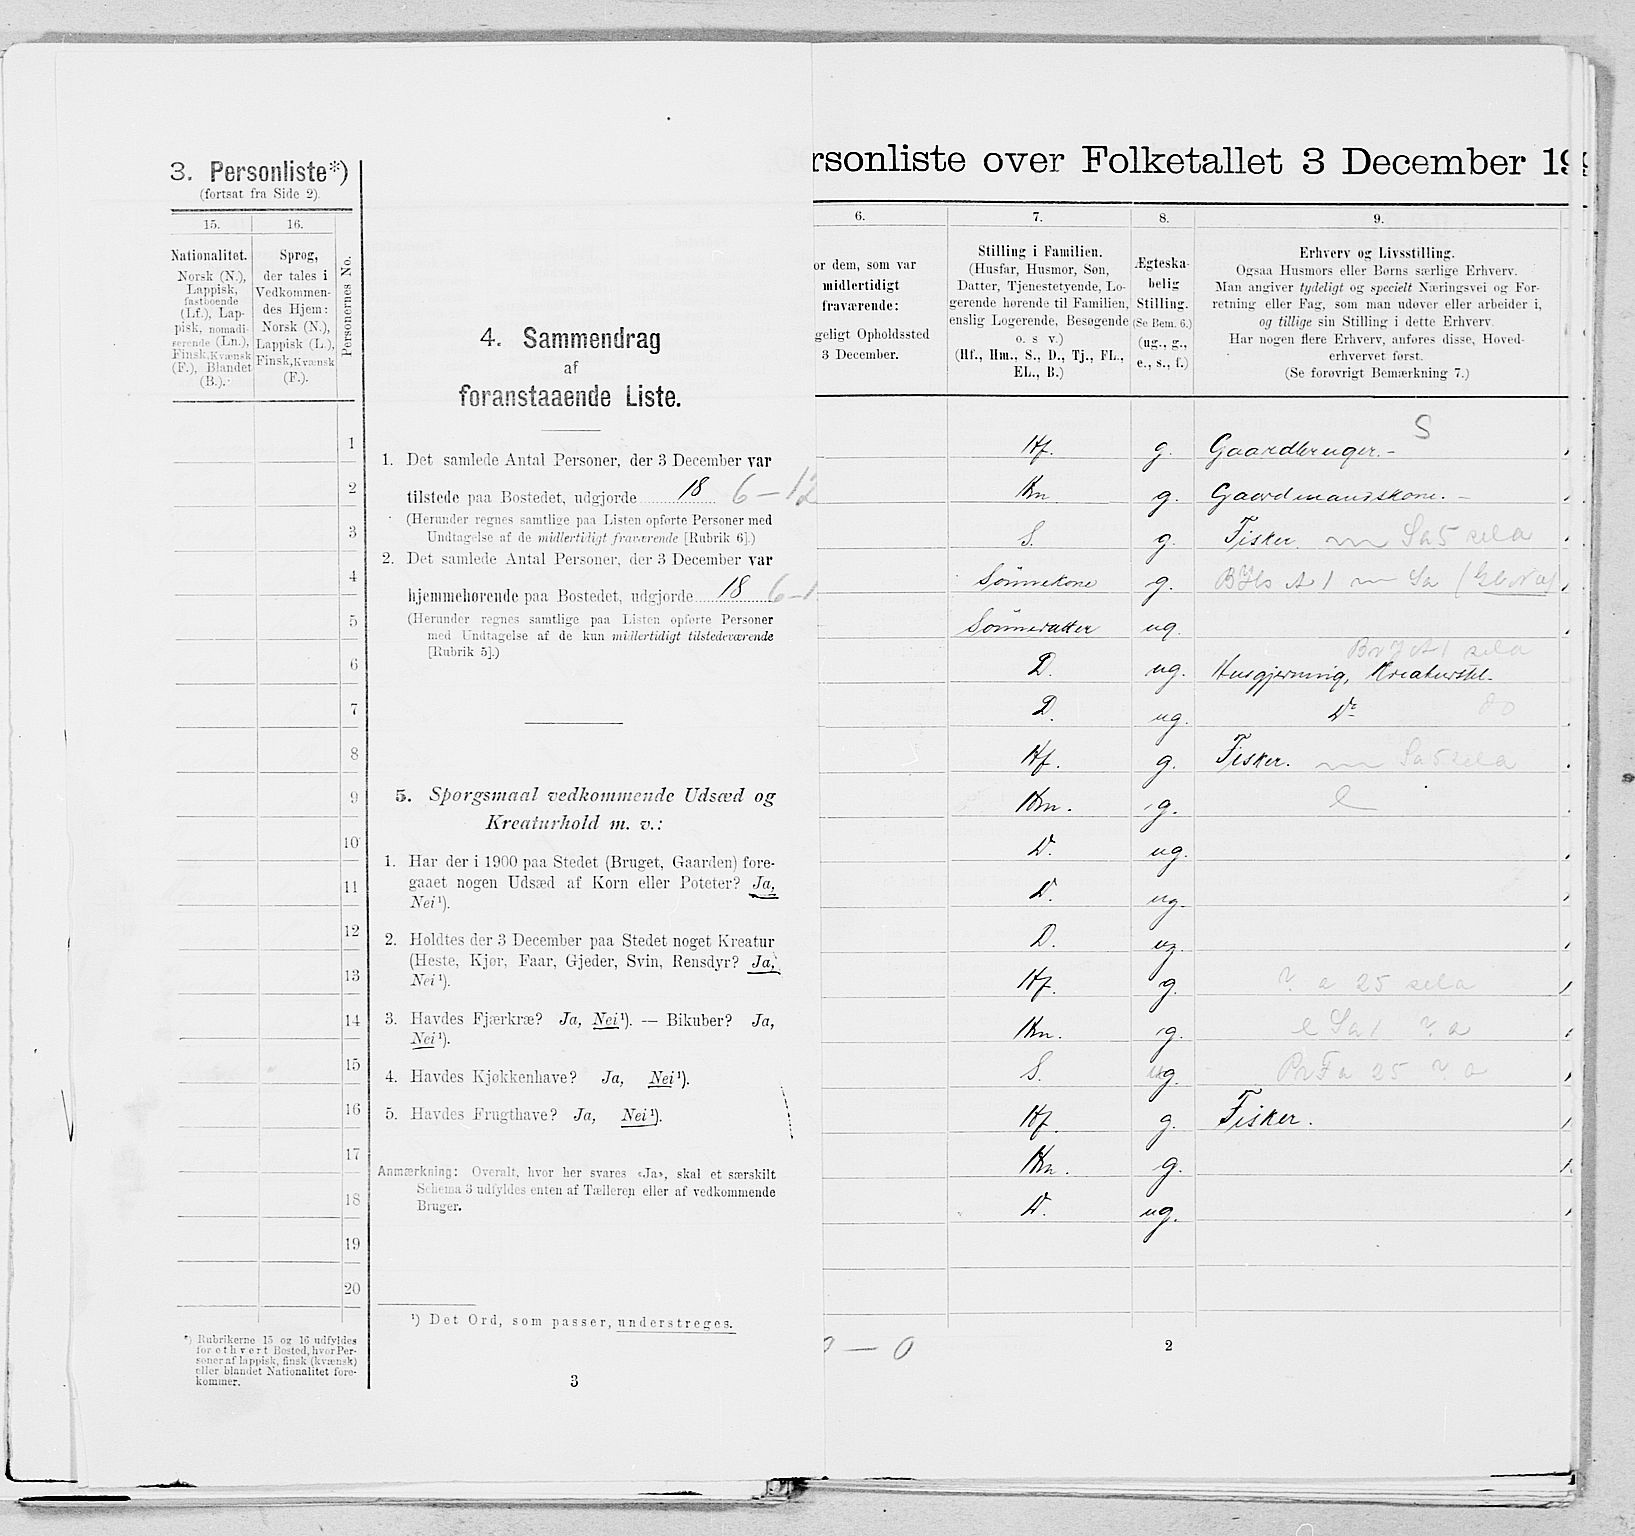 3. Personliste*)
(fortsat fra Side 2).
15.
16.
Nationalitet.
Norsk (N.),
Lappisk,
fastboende
(Lf.), Lap-
pisk, nomadi-
serende (Ln.),
Finsk, Kvænsk
(F.), Blandet
(B.).
Sprog,
der tales i
Vedkommen-
des Hjem:
Norsk (N.),
Lappisk (L.),
Finsk, Kvænsk
(F.).
Personernes No.
1
2
3
4
5
6
7
8
9
10
11
12
13
14
15
16
17
18
19
20
*) Rubrikerne 15 og 16 udfyldes
for ethvert Bosted, hvor Per-
soner af lappisk, finsk (kvænsk)
eller blandet Nationalitet fore-
kommer.
4. Sammendrag
af
foranstaaende Liste.
1. Det samlede Antal Personer, der 3 December var
tilstede paa Bostedet, udgjorde 18 6-12
(Herunder regnes samtlige paa Listen opførte Personer med
Undtagelse af de midlertidigt fraværende [Rubrik 6].)
2. Det samlede Antal Personer, der 3 December var
hjemmehørende paa Bostedet, udgjorde 18 6-1
(Herunder regnes samtlige paa Listen opførte Personer
med Undtagelse af de kun midlertidigt tilstedeværende
[Rubrik 5].)
5. Sporgsmaal vedkommende Udsæd og
Kreaturhold m. v.:
1. Har der i 1900 paa Stedet (Bruget, Gaarden) fore-
gaaet nogen Udsæd af Korn eller Poteter? Ja,
Nei¹).
2. Holdtes der 3 December paa Stedet noget Kreatur
(Heste, Kjør, Faar, Gjeder, Svin, Rensdyr? Ja,
Nei¹).
3. Havdes Fjærkræ? Ja, Nei¹). — Bikuber? Ja,
Nei¹).
4. Havdes Kjøkkenhave? Ja, Nei¹).
5. Havdes Frugthave? Ja, Nei¹).
Anmærkning: Overalt, hvor her svares «Ja», skal et særskilt
Schema 3 udfyldes enten af Tælleren eller af vedkommende
Bruger.
¹) Det Ord, som passer, understreges.
3
rsonliste over Folketallet 3 December 19
6.
7.
8.
9.
or dem, som var
midlertidigt
fraværende:
geligt Opholdssted
3 December.
Stilling i Familien.
(Husfar, Husmor, Søn,
Datter, Tjenestetyende, Lo-
gerende hørende til Familien,
enslig Logerende, Besøgende
o. s v.)
(Hf., Hm., S., D., Tj., FL.,
EL., B.)
Ægteska-
belig
Stilling.
(Se Bem. 6.)
(ug., g.,
e., s., f.)
Erhverv og Livsstilling.
Ogsaa Husmors eller Børns særlige Erhverv.
Man angiver tydeligt og specielt Næringsvei og For-
retning eller Fag, som man udøver eller arbeider i,
og tillige sin Stilling i dette Erhverv.
Har nogen flere Erhverv, anføres disse, Hoved-
erhvervet først.
(Se forøvrigt Bemærkning 7.)
S
Hf. g. Gaardbruger. -
Hm g. Gaardmandskone. -
S. g. Fisker. m Sa5 sela
Sønnekone g.
Sønnedatter ug.
D. ug. Husgjerning, Kreaturstel.
D. ug. Do do
Hf. g. Fisker. m Sa5 sela
Hm. g. e
D. ug.
D. ug.
D. ug.
Hf. g. 25 sela
Hm. g.
S. ug.
Hf. g. Fisker.
Hm. g.
D. ug.
0 — 0
2